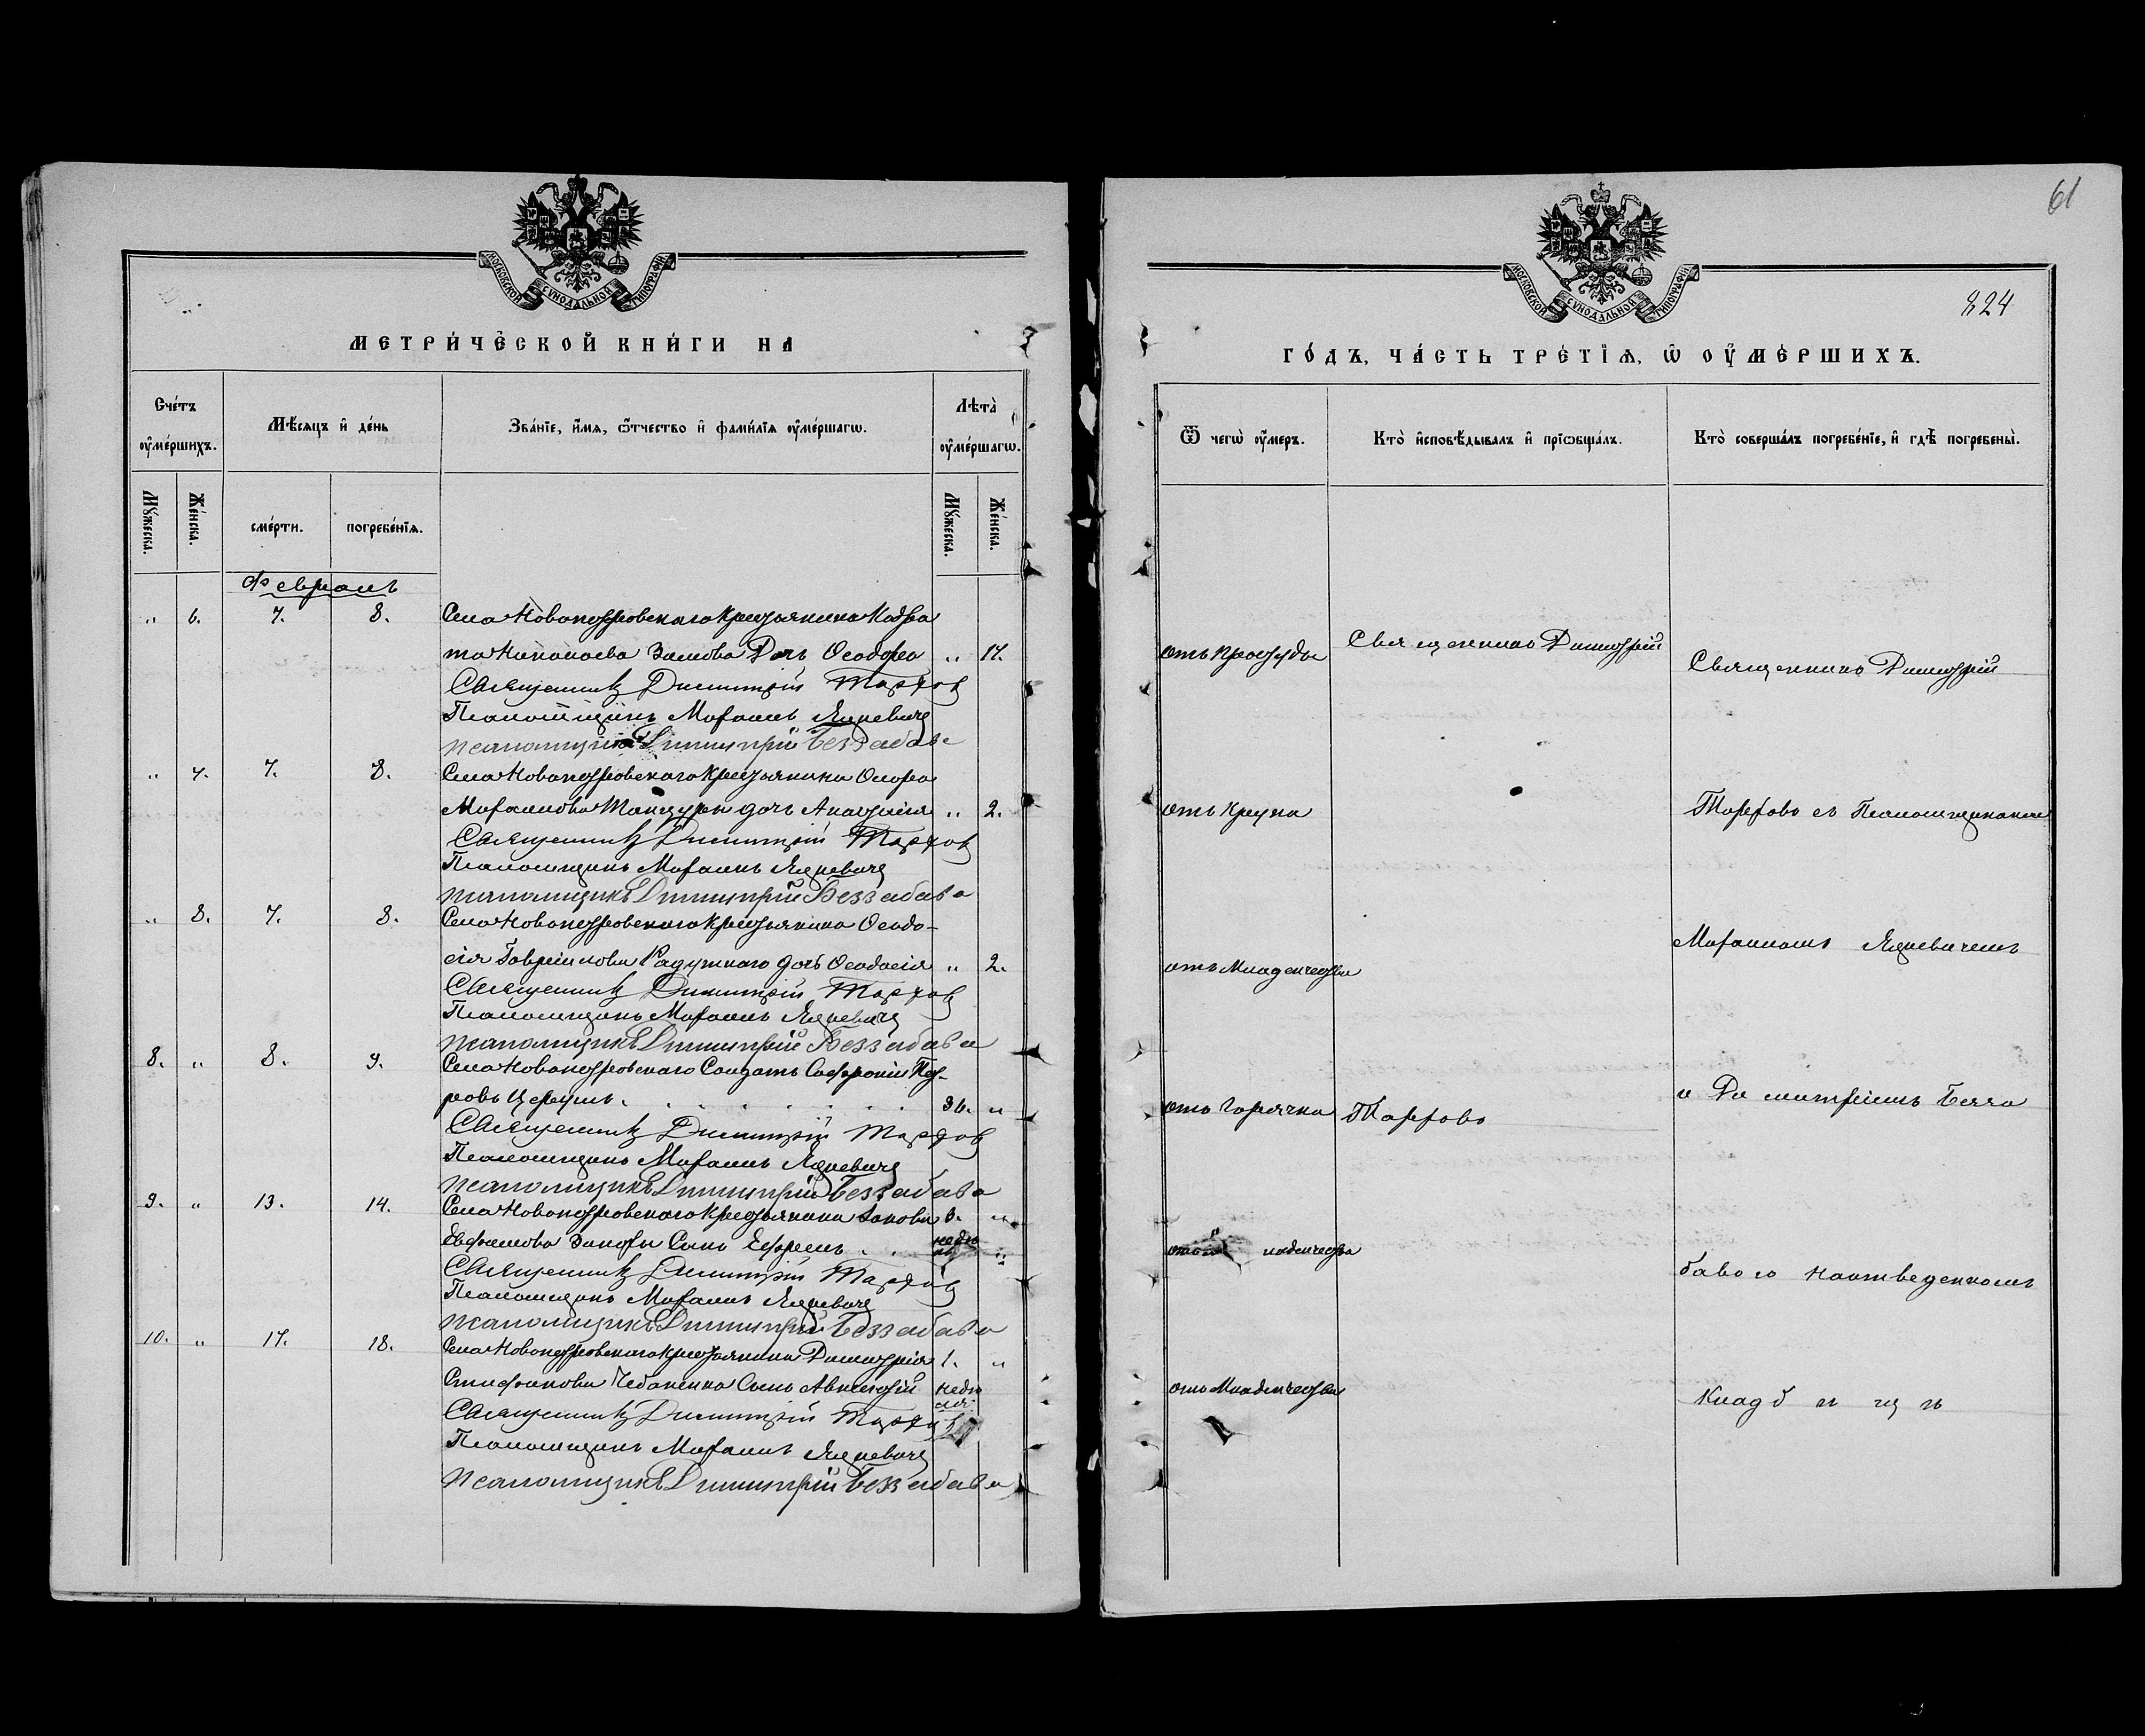 61
824
МОСКОВСКОЙ СУНОДАЛЬНОЙ ТИПОГРАФІИ
МЕТРИ́ЧЕСКОЙ КНИ́ГИ НА
Счéтъ ᲂу҆мéршихъ.
Мѣ́сяцъ и҆ дéнь
Звáнїе, и҆́мя, ѻ҆́тчество и҆ фами́лїя ᲂу҆мéршагѡ.
Лѣтà ᲂу҆мéршагѡ.
Мꙋ́жеска.
Жéнска.
смéрти.
погребéнїѧ.
Мꙋ́жеска.
Жéнска.
Февраль
„ 6. 7. 8. Села Новопетровскаго крестьянина Кодра
та Зашова Дочь Ѳеодора „ 17.
Священникъ Димитрій Тархов
Псаломщикъ Михаилъ Яцкевичъ
псаломщикъ Димитрій Беззабава
„ 7. 7. 8. Села Новопетровскаго крестьянина
Михаилова дочь Анастасія „ 2.
Священникъ Димитрій Тархов
Псаломщикъ Михаилъ Яцкевичъ
псаломщикъ Димитрій Беззабава
„ 8. 7. 8. Села Новопетровскаго крестьянина Ѳеодо-
сія Гавріилова Радужнаго дочь Ѳеодосія „ 2.
Священникъ Димитрій Тархов
Псаломщикъ Михаилъ Яцкевичъ
псаломщикъ Димитрій Беззабава
8. „ 8. 9. Села Новопетровскаго Солдатъ Софроній Пет-
ровъ 36. „
Священникъ Димитрій Тархов
Псаломщикъ Михаилъ Яцкевичъ
псаломщикъ Димитрій Беззабава
9. „ 13. 14. Села Новопетровскаго крестьянина Іакова 3. „
Евфимова Сынъ Ефремъ недѣ „
Священникъ Димитрій Тархов
Псаломщикъ Михаилъ Яцкевичъ
псаломщикъ Димитрій Беззабава
10. „ 17. 18. Села Новопетровскаго крестьянина Димитрія 1. „
Стефанова Чебаненка Сынъ Авксентій недѣ
ля
Священникъ Димитрій Тархов
Псаломщикъ Михаилъ Яцкевичъ
псаломщикъ Димитрій Беззабава
МОСКОВСКОЙ СУНОДАЛЬНОЙ ТИПОГРАФІИ
ГÓДЪ, ЧÁСТЬ ТРÉТЇѦ, Ѡ҆ ОУ҆МÉРШИХЪ.
Ѿ чегѡ̀ ᲂу҆́меръ.
Ктò и҆сповѣ́дывалъ и҆ прїѡбщáлъ.
Ктò совершáлъ погребéнїе, и҆ гдѣ̀ погребены̀.
отъ простуды Священникъ Димитрій Священникъ Димитрій
отъ крупа Тарховъ съ Псаломщиками
отъ младенчества Михаиломъ Яцкевичемъ
отъ горячки Тарховъ и Димитріемъ Безза
младенчества бавою на отведенномъ
отъ младенчества кладбищѣ